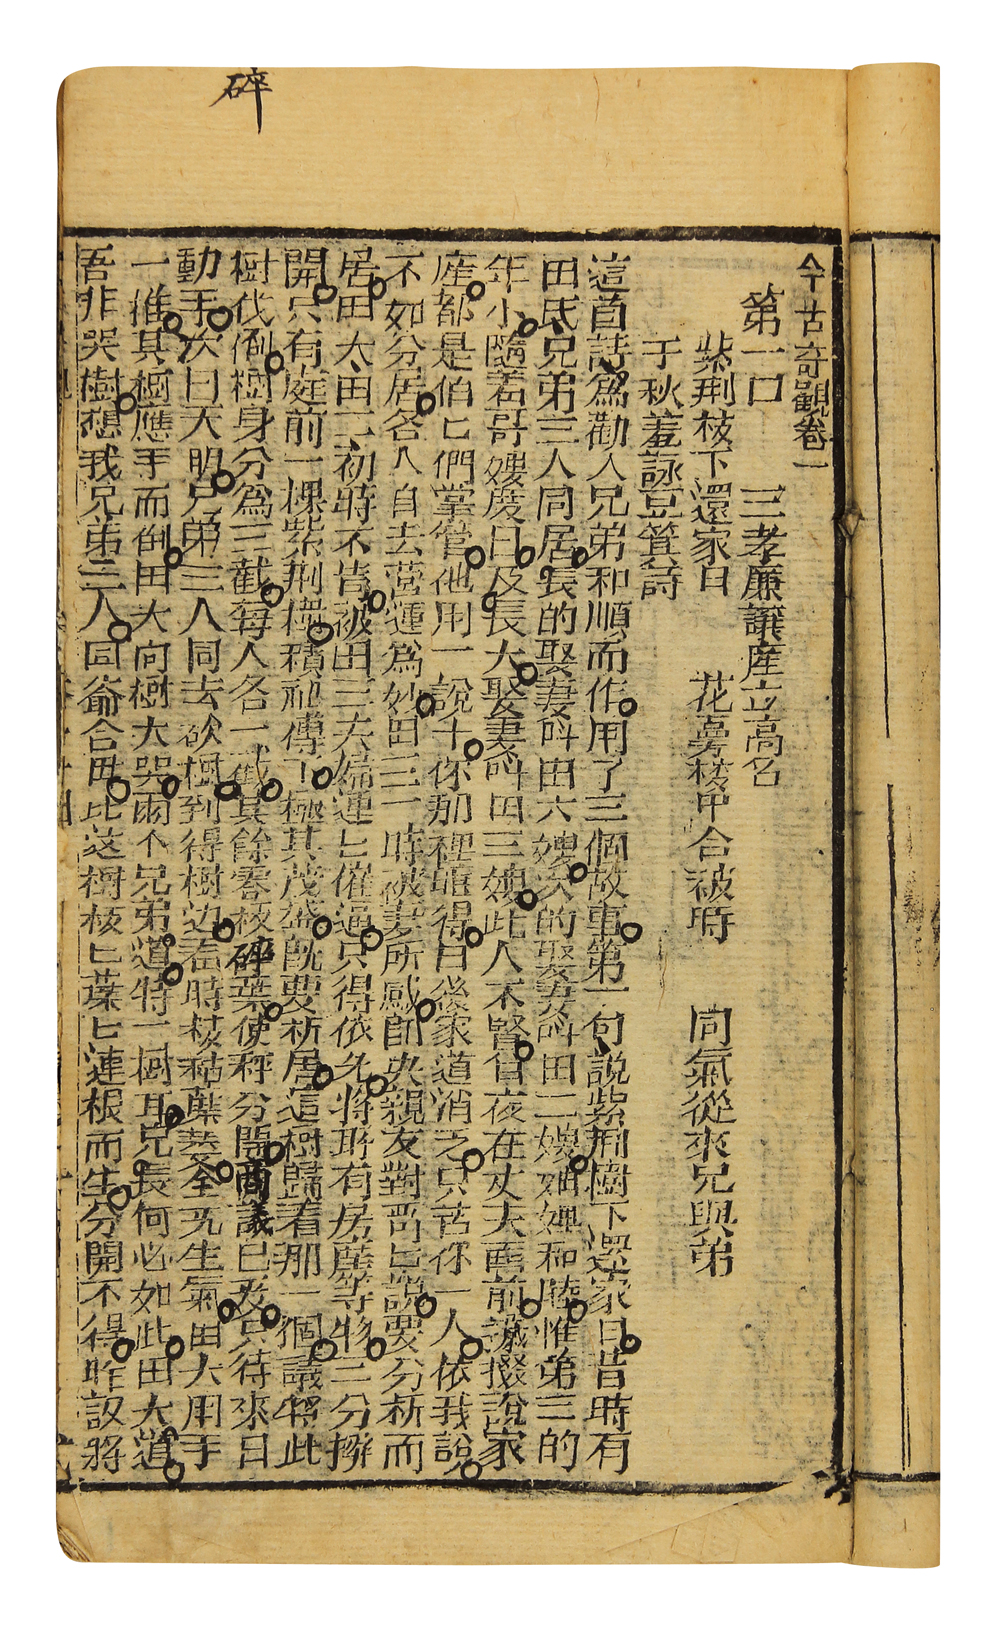 碎
今古奇觀卷一
第一口 三孝廉讓產立高名
紫荆枝下還家日 花萼枝甲合被時 同氣從來兄與弟
千秋羞詠豆箕詩
這首詩為勸人兄弟和順而作用了三個故事第一句說紫荆樹下還家日昔時有
田氏兄弟三人同居長的娶妻叫田大嫂次的娶妻叫田二嫂妯娌和睦惟第三的
年小隨着哥嫂度日及長大娶妻叫田三嫂此人不賢日夜在丈夫面前攛掇說家
產都是伯匕們掌管他用一說十你那裡曉得日後家道消乏只苦你一人依我說
不如分居各人自去營運為妙田三一時被妻所惑即央親友對哥匕說要分析而
居田大田二初時不肯被田三夫婦連匕催逼只得依允將所有房產等物三分撥
開只有庭前一棵紫荆樹積祖傳下極其茂盛既要析居這樹歸着那一個議將此
樹伐倒樹身分為三截每人各一截其餘零枝碎葉使秤分開商議已定只待來日
動手次日天明兄弟三人同去砍樹到得樹边看時枝枯葉萎全无生氣田大用手
一推其樹應手而倒田大向樹大哭兩个兄弟道特一樹耳兄長何必如此田大道
吾非哭樹想我兄弟三人同爺合母比这樹枝匕葉匕連根而生分開不得昨議將